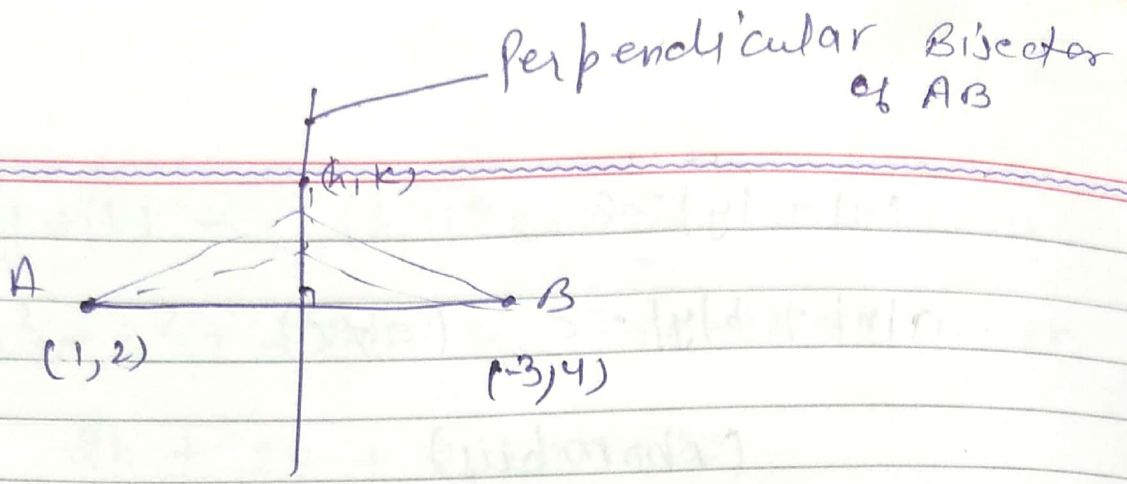 Perpendicular Bisector
of AB
(h, k)
A
B
(1, 2)
(-3, 4)